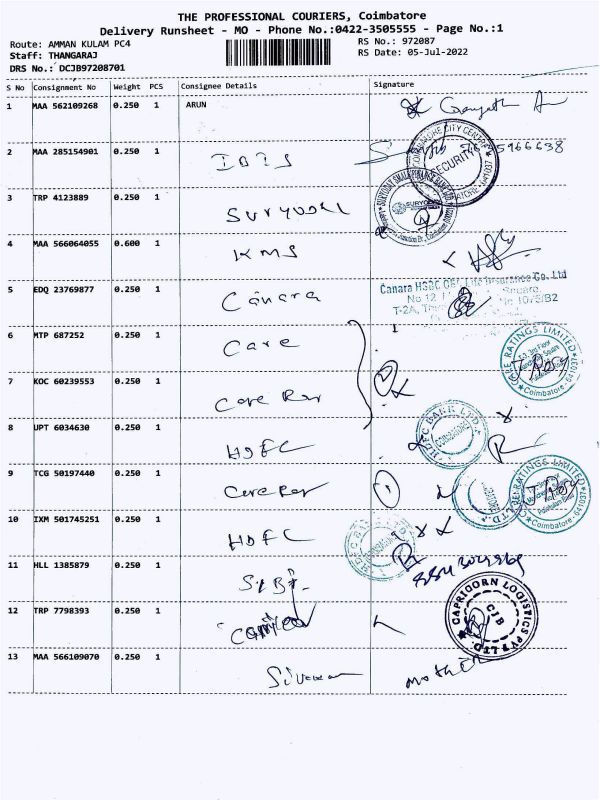 THE PROFESSIONAL COURIERS, Coimbatore
Delivery Runsheet - MO - Phone No.:0422-3505555 - Page No.:1
Route: AMMAN KULAM PC4 RS No.: 972087
Staff: THANGARAJ RS Date: 05-Jul-2022
DRS No.: DCJB97208701
S No Consignment No Weight PCS Consignee Details Signature
1 MAA 562109268 0.250 1 ARUN
2 MAA 285154901 0.250 1 IBIS
COIMBATORE CITY CENTRE
SECURITY
3 TRP 4123889 0.250 1
SURYODAY
4 MAA 566064055 0.600 1 KMS
5 EDQ 23769877 0.250 1 Canara
Canara HSBC OBC Life Insurance Co. Ltd
No 12
6 MTP 687252 0.250 1 Care
CARE RATINGS LIMITED
Coimbatore - 641037
7 KOC 60239553 0.250 1 Care Rar
8 UPT 6034630 0.250 1 HDFC
HDFC BANK LTD.
COIMBATORE
9 TCG 50197440 0.250 1 Care Rar
CARE RATINGS LIMITED
Coimbatore - 641037
10 IXM 501745251 0.250 1 HDFC
HDFC BANK LTD.
11 HLL 1385879 0.250 1
12 TRP 7798393 0.250 1
CAPRICORN LOGISTICS PVT LTD.
CJB
13 MAA 566109070 0.250 1 Mother